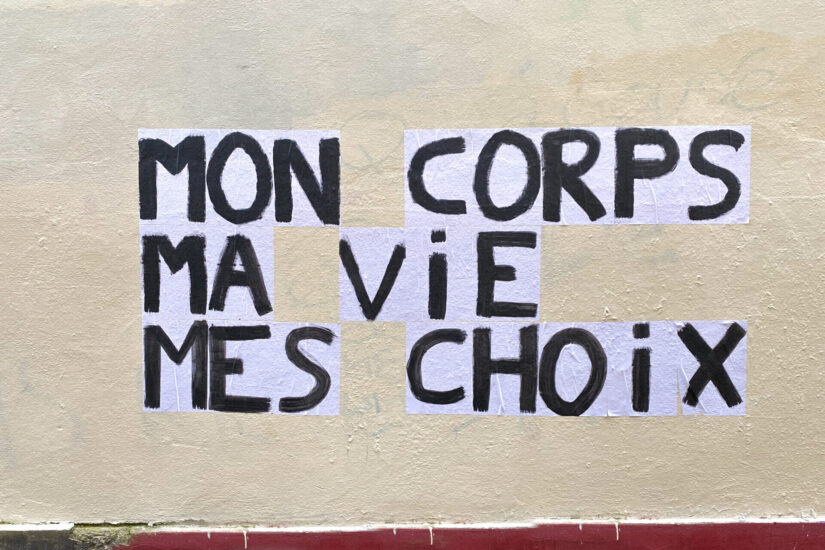 MON CORPS
MA ViE
MES CHOiX